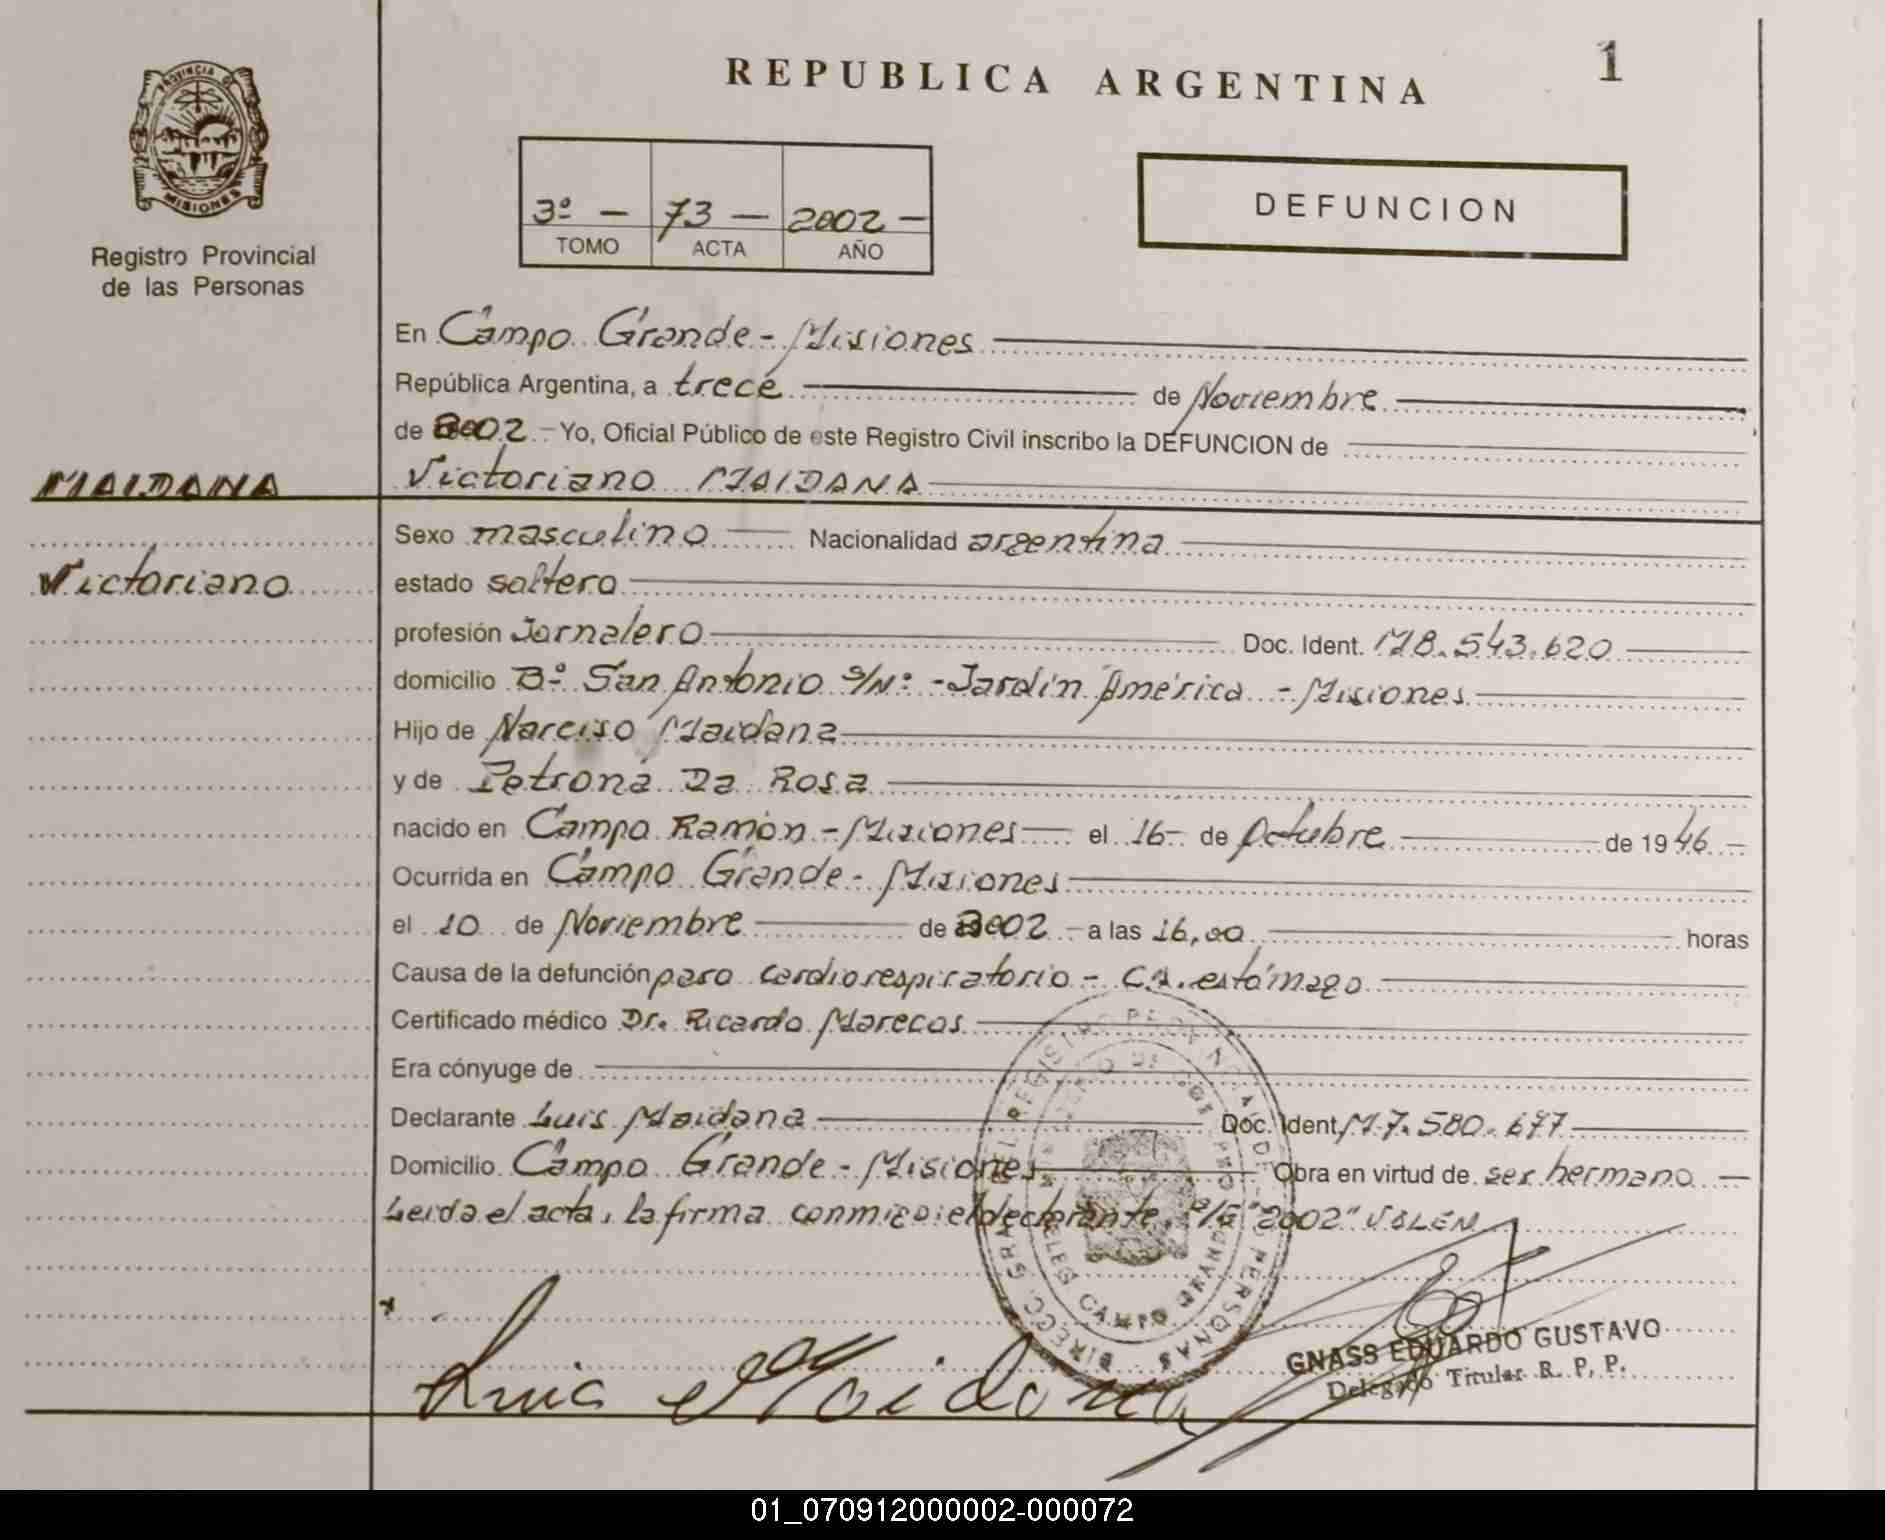 PROVINCIA DE
MISIONES
Registro Provincial
de las Personas
REPUBLICA ARGENTINA
1
3º — 73 — 2002 —
TOMO ACTA AÑO
DEFUNCION
En Campo Grande - Misiones
República Argentina, a trece de Noviembre
de 2002 - Yo, Oficial Público de este Registro Civil inscribo la DEFUNCION de
MAIDANA
Victoriano MAIDANA
Sexo masculino Nacionalidad argentina
Victoriano
estado soltero
profesión Jornalero Doc. Ident. M8.543.620
domicilio Bº San Antonio S/Nº - Jardín América - Misiones
Hijo de Narciso Maidana
y de Petrona Da Rosa
nacido en Campo Ramón - Misiones el 16 - de Octubre de 1946 -
Ocurrida en Campo Grande - Misiones
el 10 de Noviembre de 2002 - a las 16,00 horas
Causa de la defunción paro cardiorespiratorio - CA. estómago
Certificado médico Dr. Ricardo Marecos
Era cónyuge de
Declarante Luis Maidana Doc. Ident. M7.580.677
Domicilio Campo Grande - Misiones Obra en virtud de ser hermano —
Leída el acta, la firma conmigo el declarante. S/E "2002" VALEN
DIRECC. GRAL. DEL REGISTRO PROVINCIAL DE LAS PERSONAS
MINISTERIO DE GOBIERNO
DELEG. CAMPO GRANDE
Luis Maidana
GNASS EDUARDO GUSTAVO
Delegado Titular R. P. P.
01_070912000002-000072